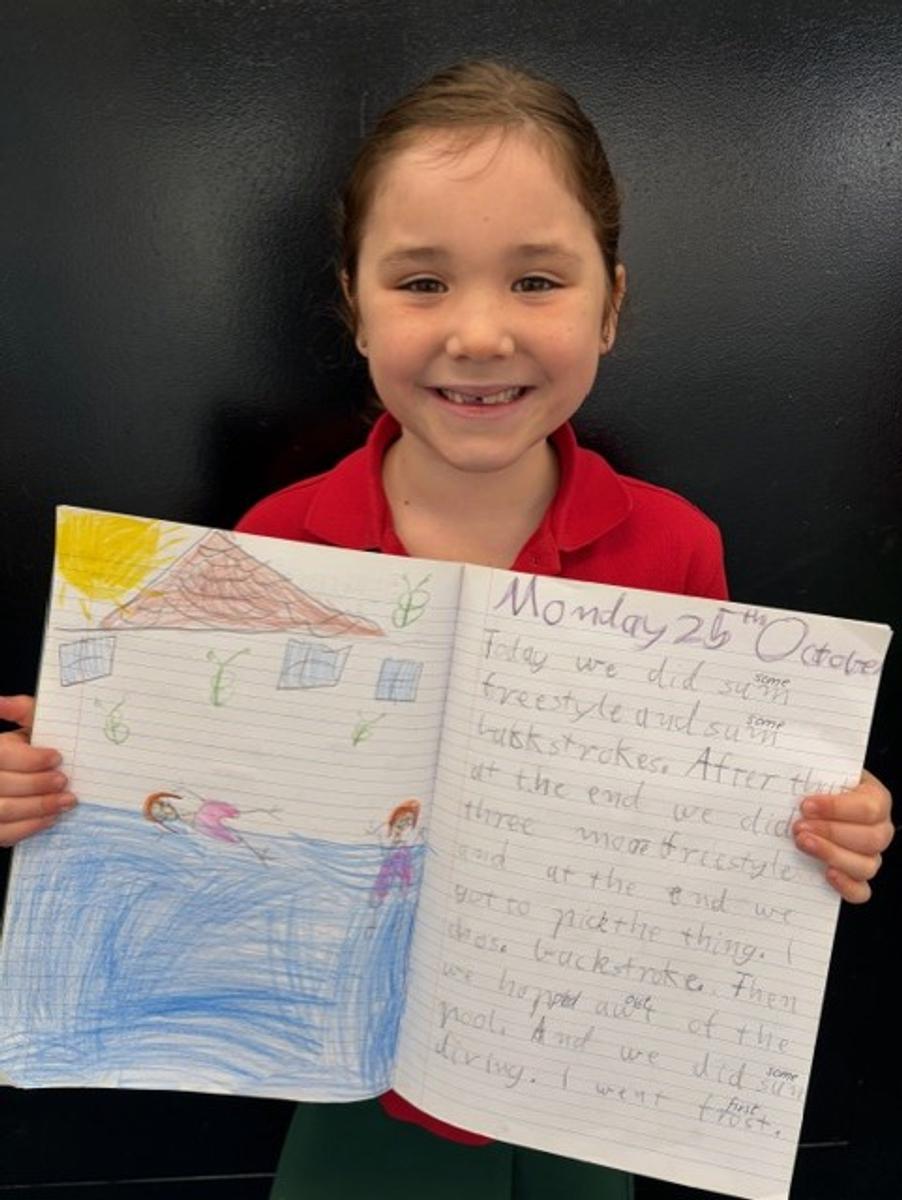 Monday 25th October
Today we did sum some
freestyle and sum some
backstrokes. After that
at the end we did
three more freestyle
and at the end we
got to pick the thing. I
chose backstroke. Then
we hopped out of the
pool. And we did sum some
diving. I went frost. first